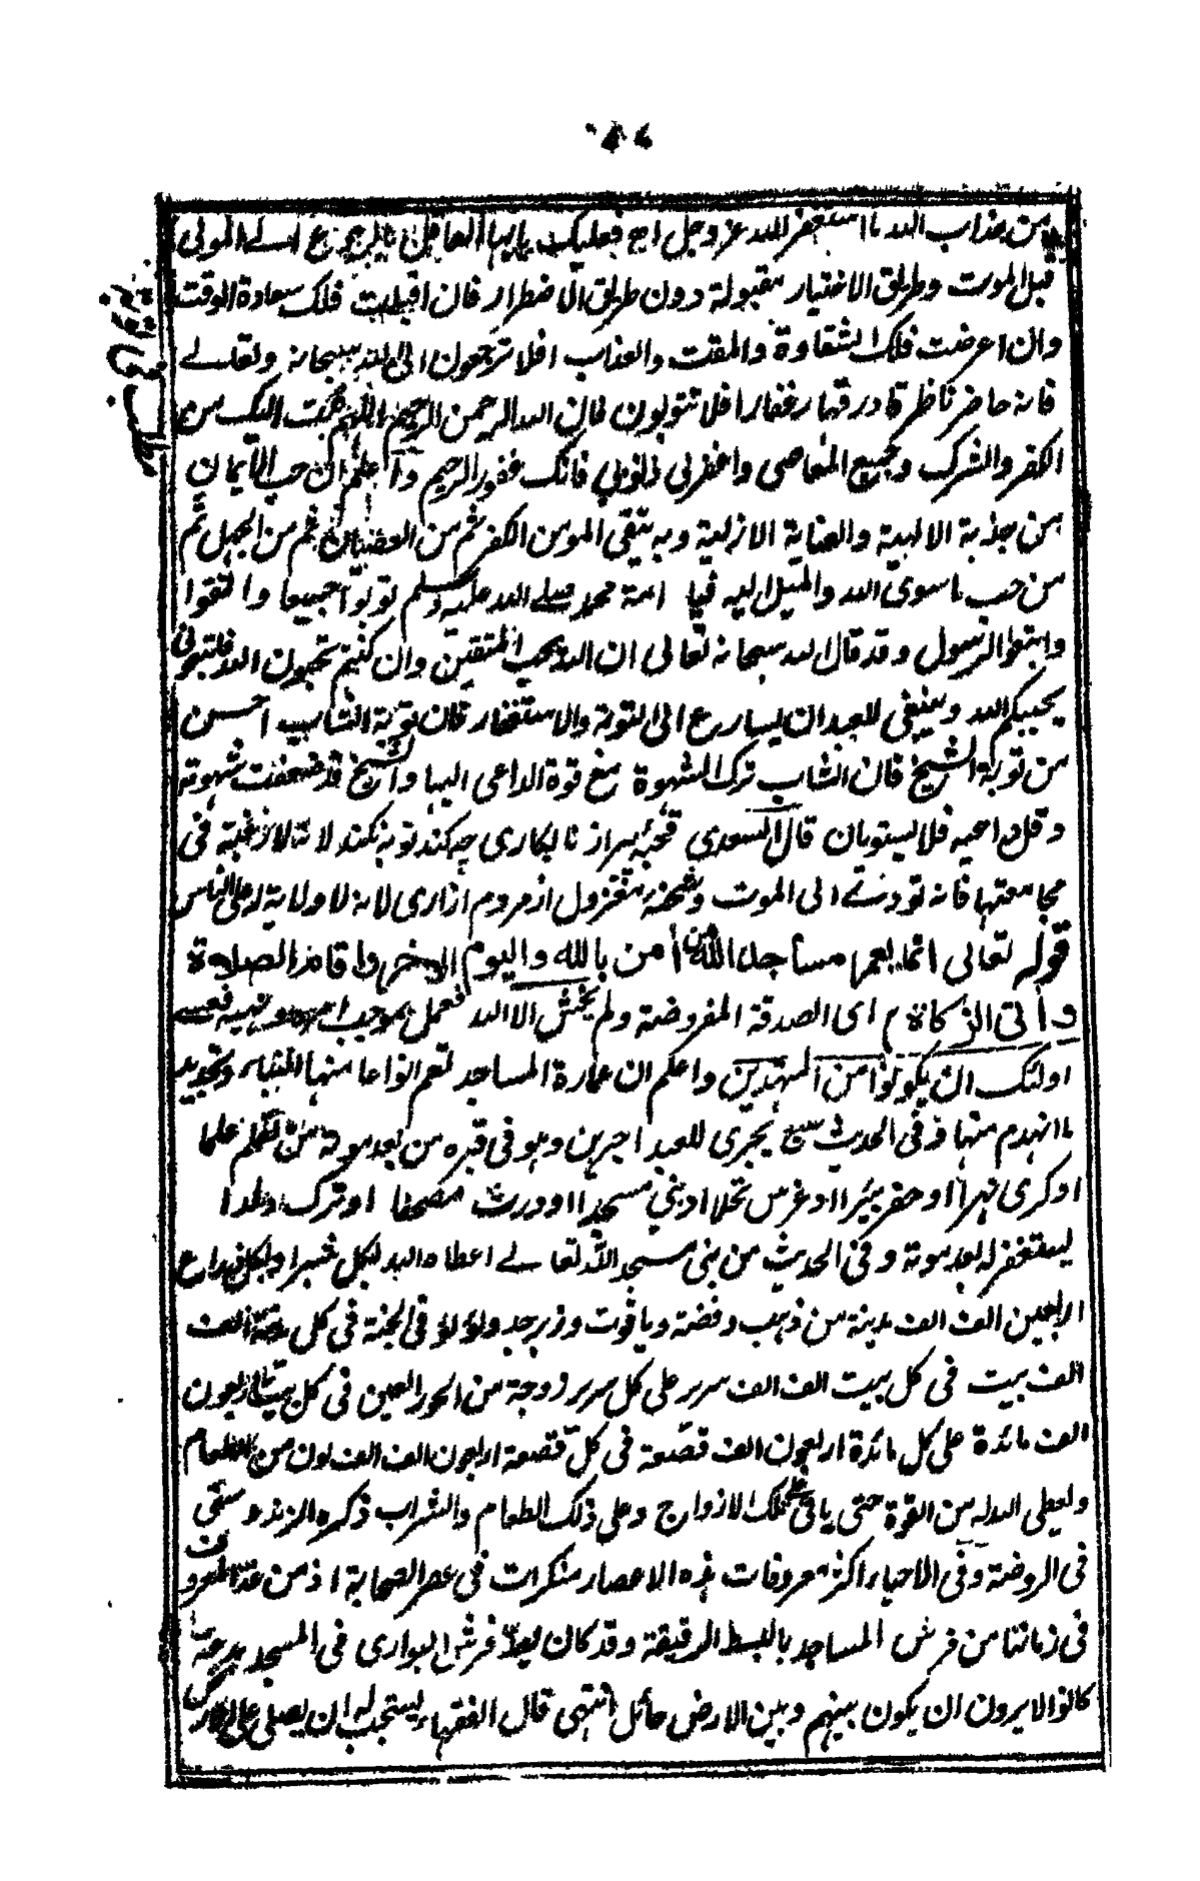 من عذاب الله ما استغفر الله عز وجل اه فعليك يا ايها العاقل بالرجوع الے المولى
قبل الموت وطريق الاختيار مقبولة دون طريق الاضطرار فان اقبلت فلك سعادة الوقت
وان اعرضت فلك الشقاوة والمقت والعذاب افلا ترجعون الى الله سبحانه وتعالے
فانه حاضر ناظر قادر قهار غفار افلا تتوبون فان الله الرحمن الرحيم اللهم تبت اليك من
الكفر والشرك وجميع المعاصى واغفرلى ذنوبى فانك غفور الرحيم واعلم ان حب الايمان
من جذبة الالهية والعناية الازلية وبه يتقى المومن الكفر ثم من العصيان ثم من الجهل ثم
من حب ما سوى الله والميل اليه فيا امة محمد صلے الله عليه وسلم توبوا جميعا واتقوا
واتبعوا الرسول وقد قال الله سبحانه تعالى ان الله يحب المتقين وان كنتم تحبون الله فاتبعونى
يحببكم الله وينبغى للعبد ان يسارع الى التوبة والاستغفار فان توبة الشاب احسن
من توبة الشيخ فان الشاب ترك الشهوة مع قوة الداعى اليها والشيخ قد ضعفت شهوته
وقل داعيه فلا يستويان قال السعدى قحبۂ پير از نابكارى چه كند توبه نكند لانه لا رغبة فى
مجامعتها فانه تودئے الى الموت وشحنۂ معزول از مردم آزارى لانه لا ولاية له على الناس
قوله تعالى انما يعمر مساجد الله من أمن بالله واليوم الاخر واقام الصلوة
وأتى الزكاة م اى الصدقة المفروضة ولم يخش الا الله فعمل بموجب امره ونهيه فعسے
اولئك ان يكونوا من المهتدين واعلم ان عمارة المساجد تعم انواعا منها البناء وتجديد
ما انهدم منها وفى الحديث سبع يجرى للعبد اجرهن وهو فى قبره من بعد موته من تعلم علما
او كرى نهرا او حفر بيرا او غرس نخلا او بنى مسجدا او ورث مصحفا او ترك ولدا
يستغفر له بعد موته وفى الحديث من بنى مسجد الله تعالے اعطاه الله بكل شبرا وبكل ذراع
اربعين الف الف مدينة من ذهب وفضة وياقوت وزبرجد ولؤلؤ فى الجنة فى كل مدينة الف
الف بيت فى كل بيت الف الف سرير على كل سرير زوجة من الحور العين فى كل بيت اربعون
الف مائدة على كل مائدة اربعون الف قصعة فى كل قصعة اربعون الف الف لون من الطعام
ويعطى الله له من القوة حتى ياتى على تلك الازواج وعلى ذلك الطعام والشراب ذكره الزندوستى
فى الروضة وفى الاحياء اكثر معروفات هذه الاعصار منكرات فى عصر الصحابة اذ من عد المعروف
فى زماننا من فرش المساجد بالبسط الرقيقة وقد كان يعد فرش البوارى فى المسجد بدعة
كانوا لا يرون ان يكون بينهم وبين الارض حائل انتهى قال الفقهاء يستحب له ان يصلى على